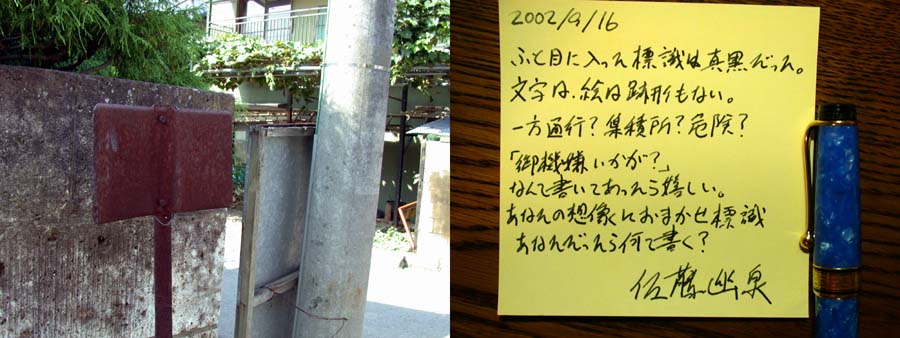 2002/9/16
ふと目に入った標識は真黒だった。
文字は、絵は跡形もない。
一方通行？集積所？危険？
「御機嫌いかが？」
なんて書いてあったら嬉しい。
あなたの想像におまかせ標識
あなただったら何て書く？
佐藤幽泉